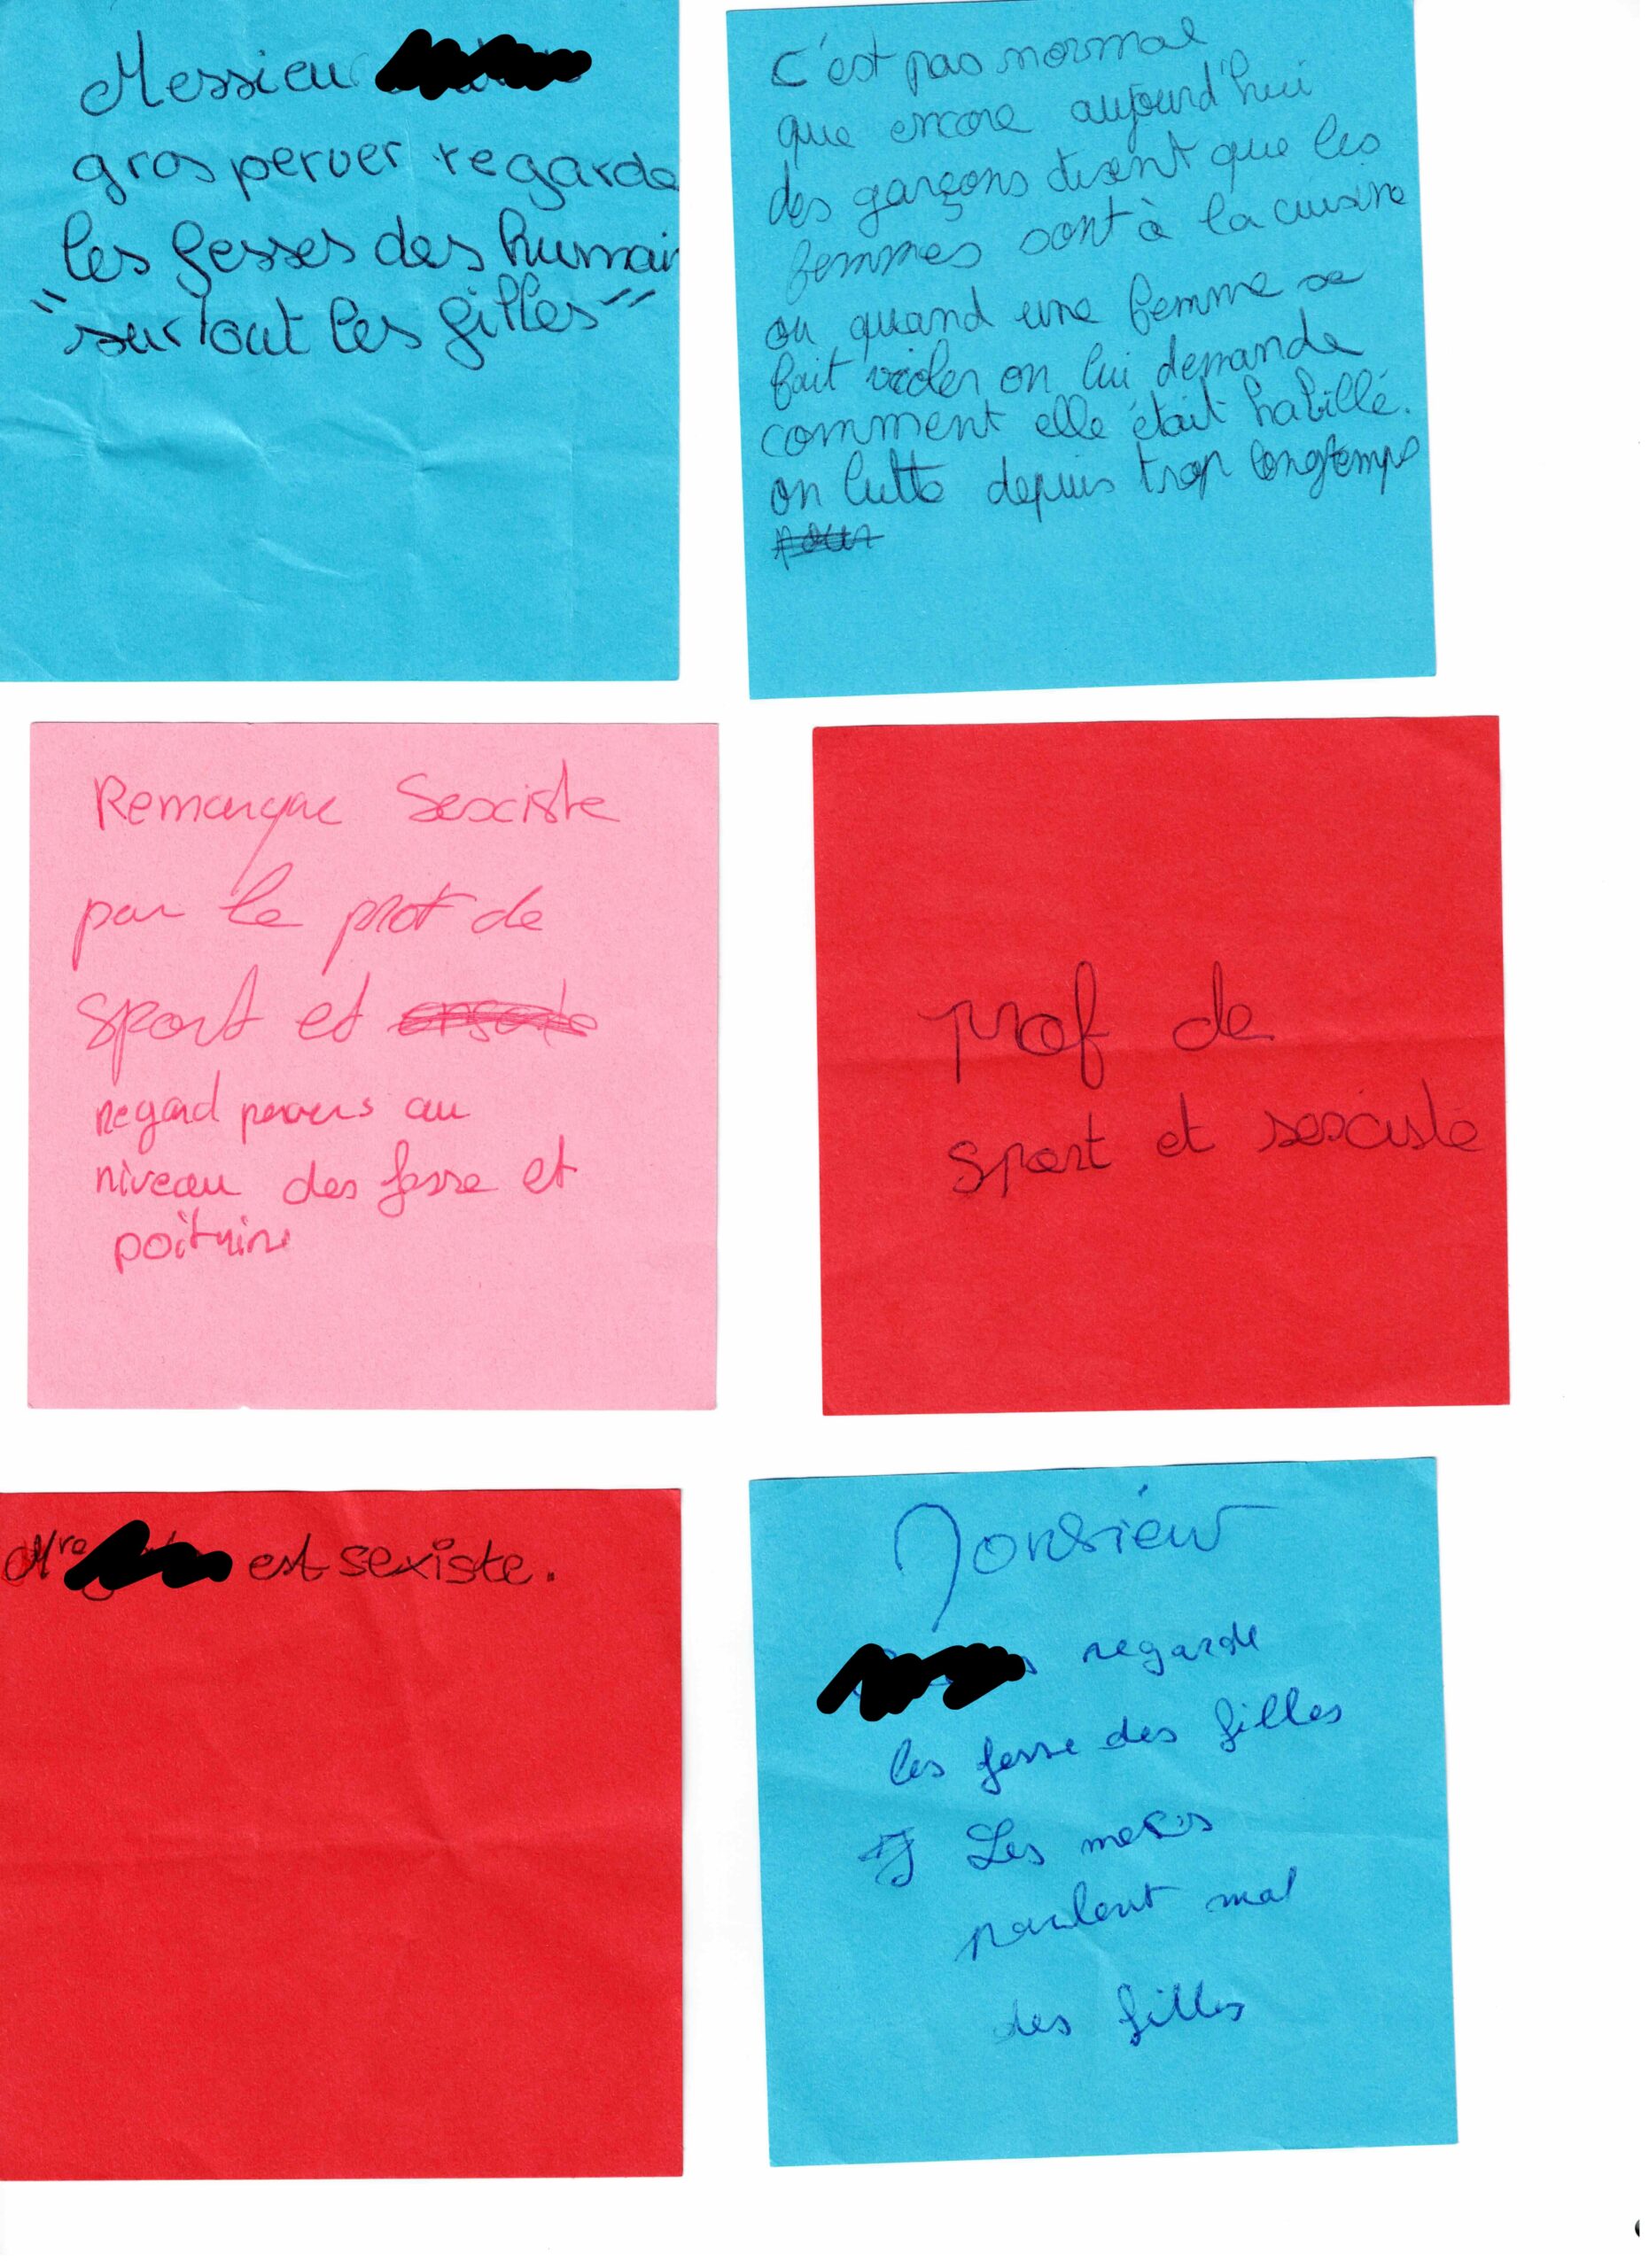 Messieu
gros perver regarde
les fesses des humai
"surtout les filles"
C'est pas normal
que encore aujourd'hui
des garçons disent que les
femmes sont à la cuisine
ou quand une femme se
fait violer on lui demande
comment elle était habillé.
on lutte depuis trop longtemps
pour
Remarque Sexciste
par le prof de
sport et
regard pervers au
niveau des fesse et
poitrine
prof de
sport et sexciste
Mre est sexiste.
Monsieur
regarde
les fesse des filles
Les mecs
parlent mal
des filles